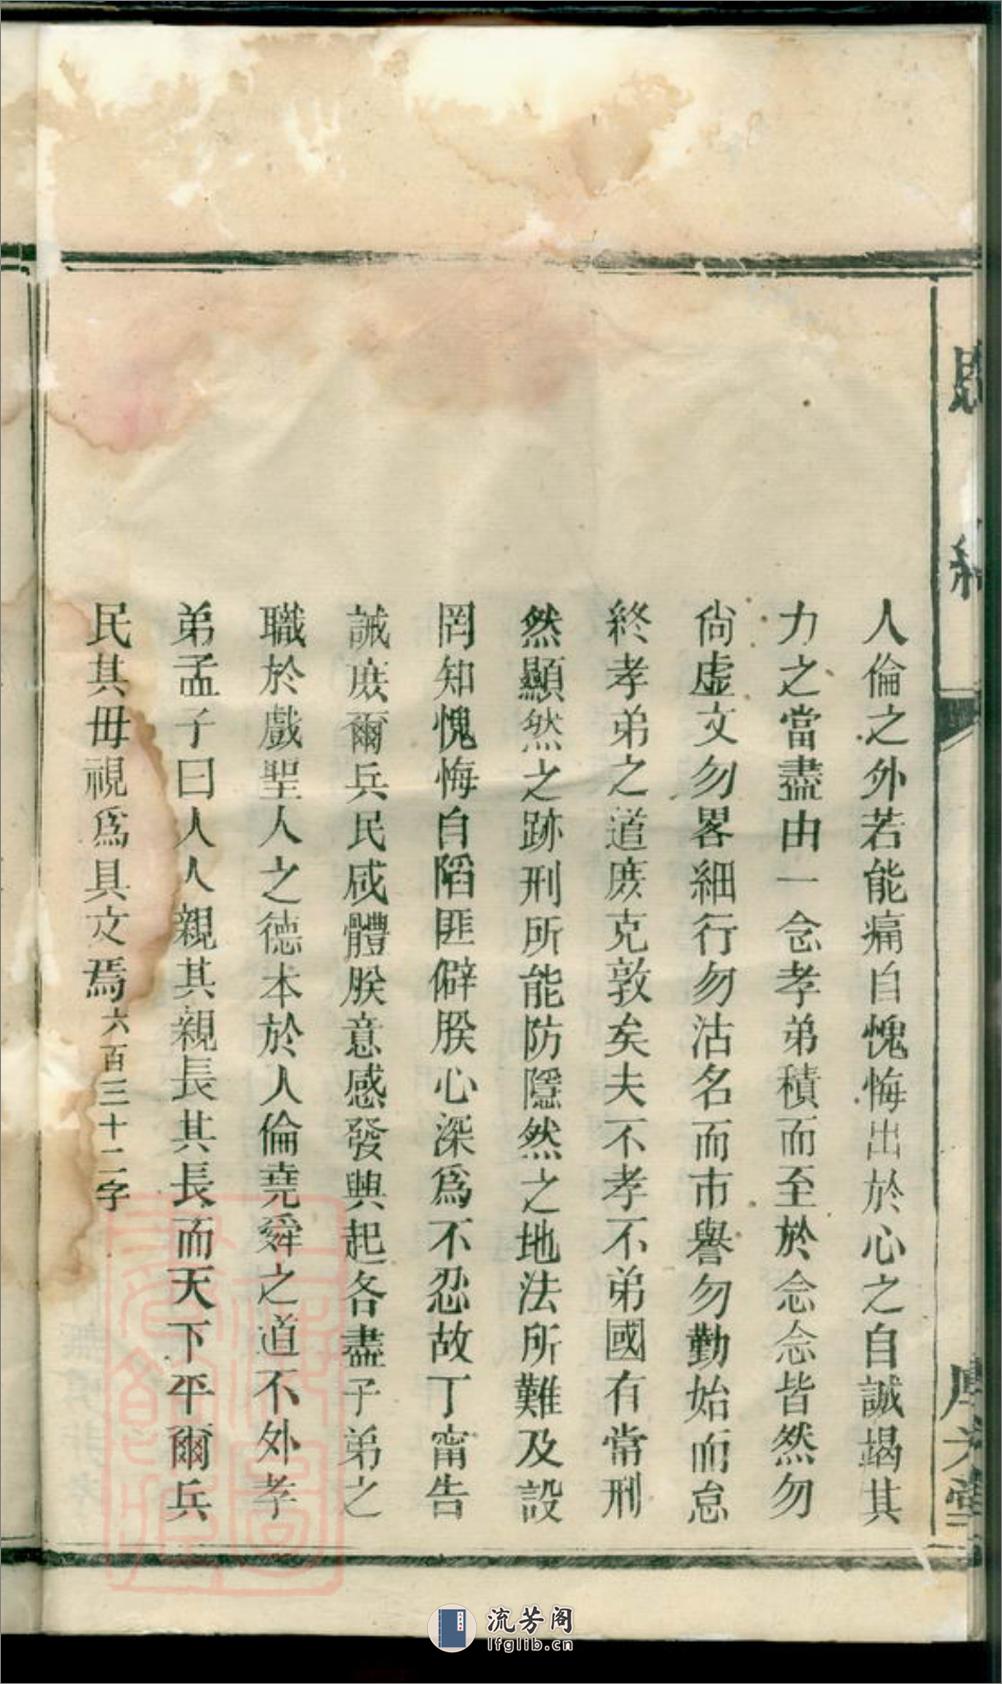 人倫之外若能痛自愧悔出於心之自誠竭其
力之當盡由一念孝弟積而至於念念皆然勿
尙虚文勿畧細行勿沽名而市譽勿勤始而怠
終孝弟之道庶克敦矣夫不孝不弟國有常刑
然顯然之跡刑所能防隱然之地法所難及設
罔知愧悔自陷匪僻朕心深爲不忍故丁甯告
誡庶爾兵民咸體朕意感發興起各盡子弟之
職於戲聖人之德本於人倫堯舜之道不外孝
弟孟子曰人人親其親長其長而天下平爾兵
民其毋視爲具文焉六百三十二字
流芳阁
lfglib.cn